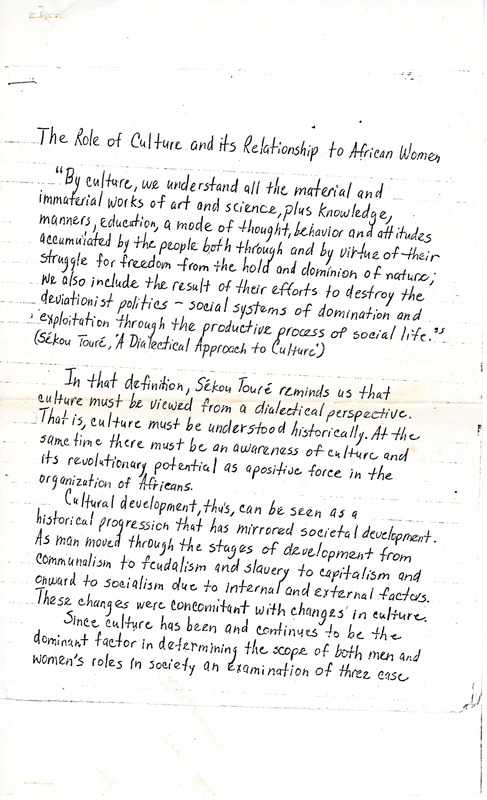 The Role of Culture and its Relationship to African Women
"By culture, we understand all the material and
immaterial works of art and science, plus knowledge,
manners, education, a mode of thought, behavior and attitudes
accumulated by the people both through and by virtue of their
struggle for freedom from the hold and dominion of nature;
we also include the result of their efforts to destroy the
deviationist politics - social systems of domination and
exploitation through the productive process of social life."
(Sékou Touré, 'A Dialectical Approach to Culture')
In that definition, Sékou Touré reminds us that
culture must be viewed from a dialectical perspective.
That is, culture must be understood historically. At the
same time there must be an awareness of culture and
its revolutionary potential as a positive force in the
organization of Africans.
Cultural development, thus, can be seen as a
historical progression that has mirrored societal development.
As man moved through the stages of development from
communalism to feudalism and slavery to capitalism and
onward to socialism due to internal and external factors.
These changes were concomitant with changes in culture.
Since culture has been and continues to be the
dominant factor in determining the scope of both men and
women's roles in society an examination of three case